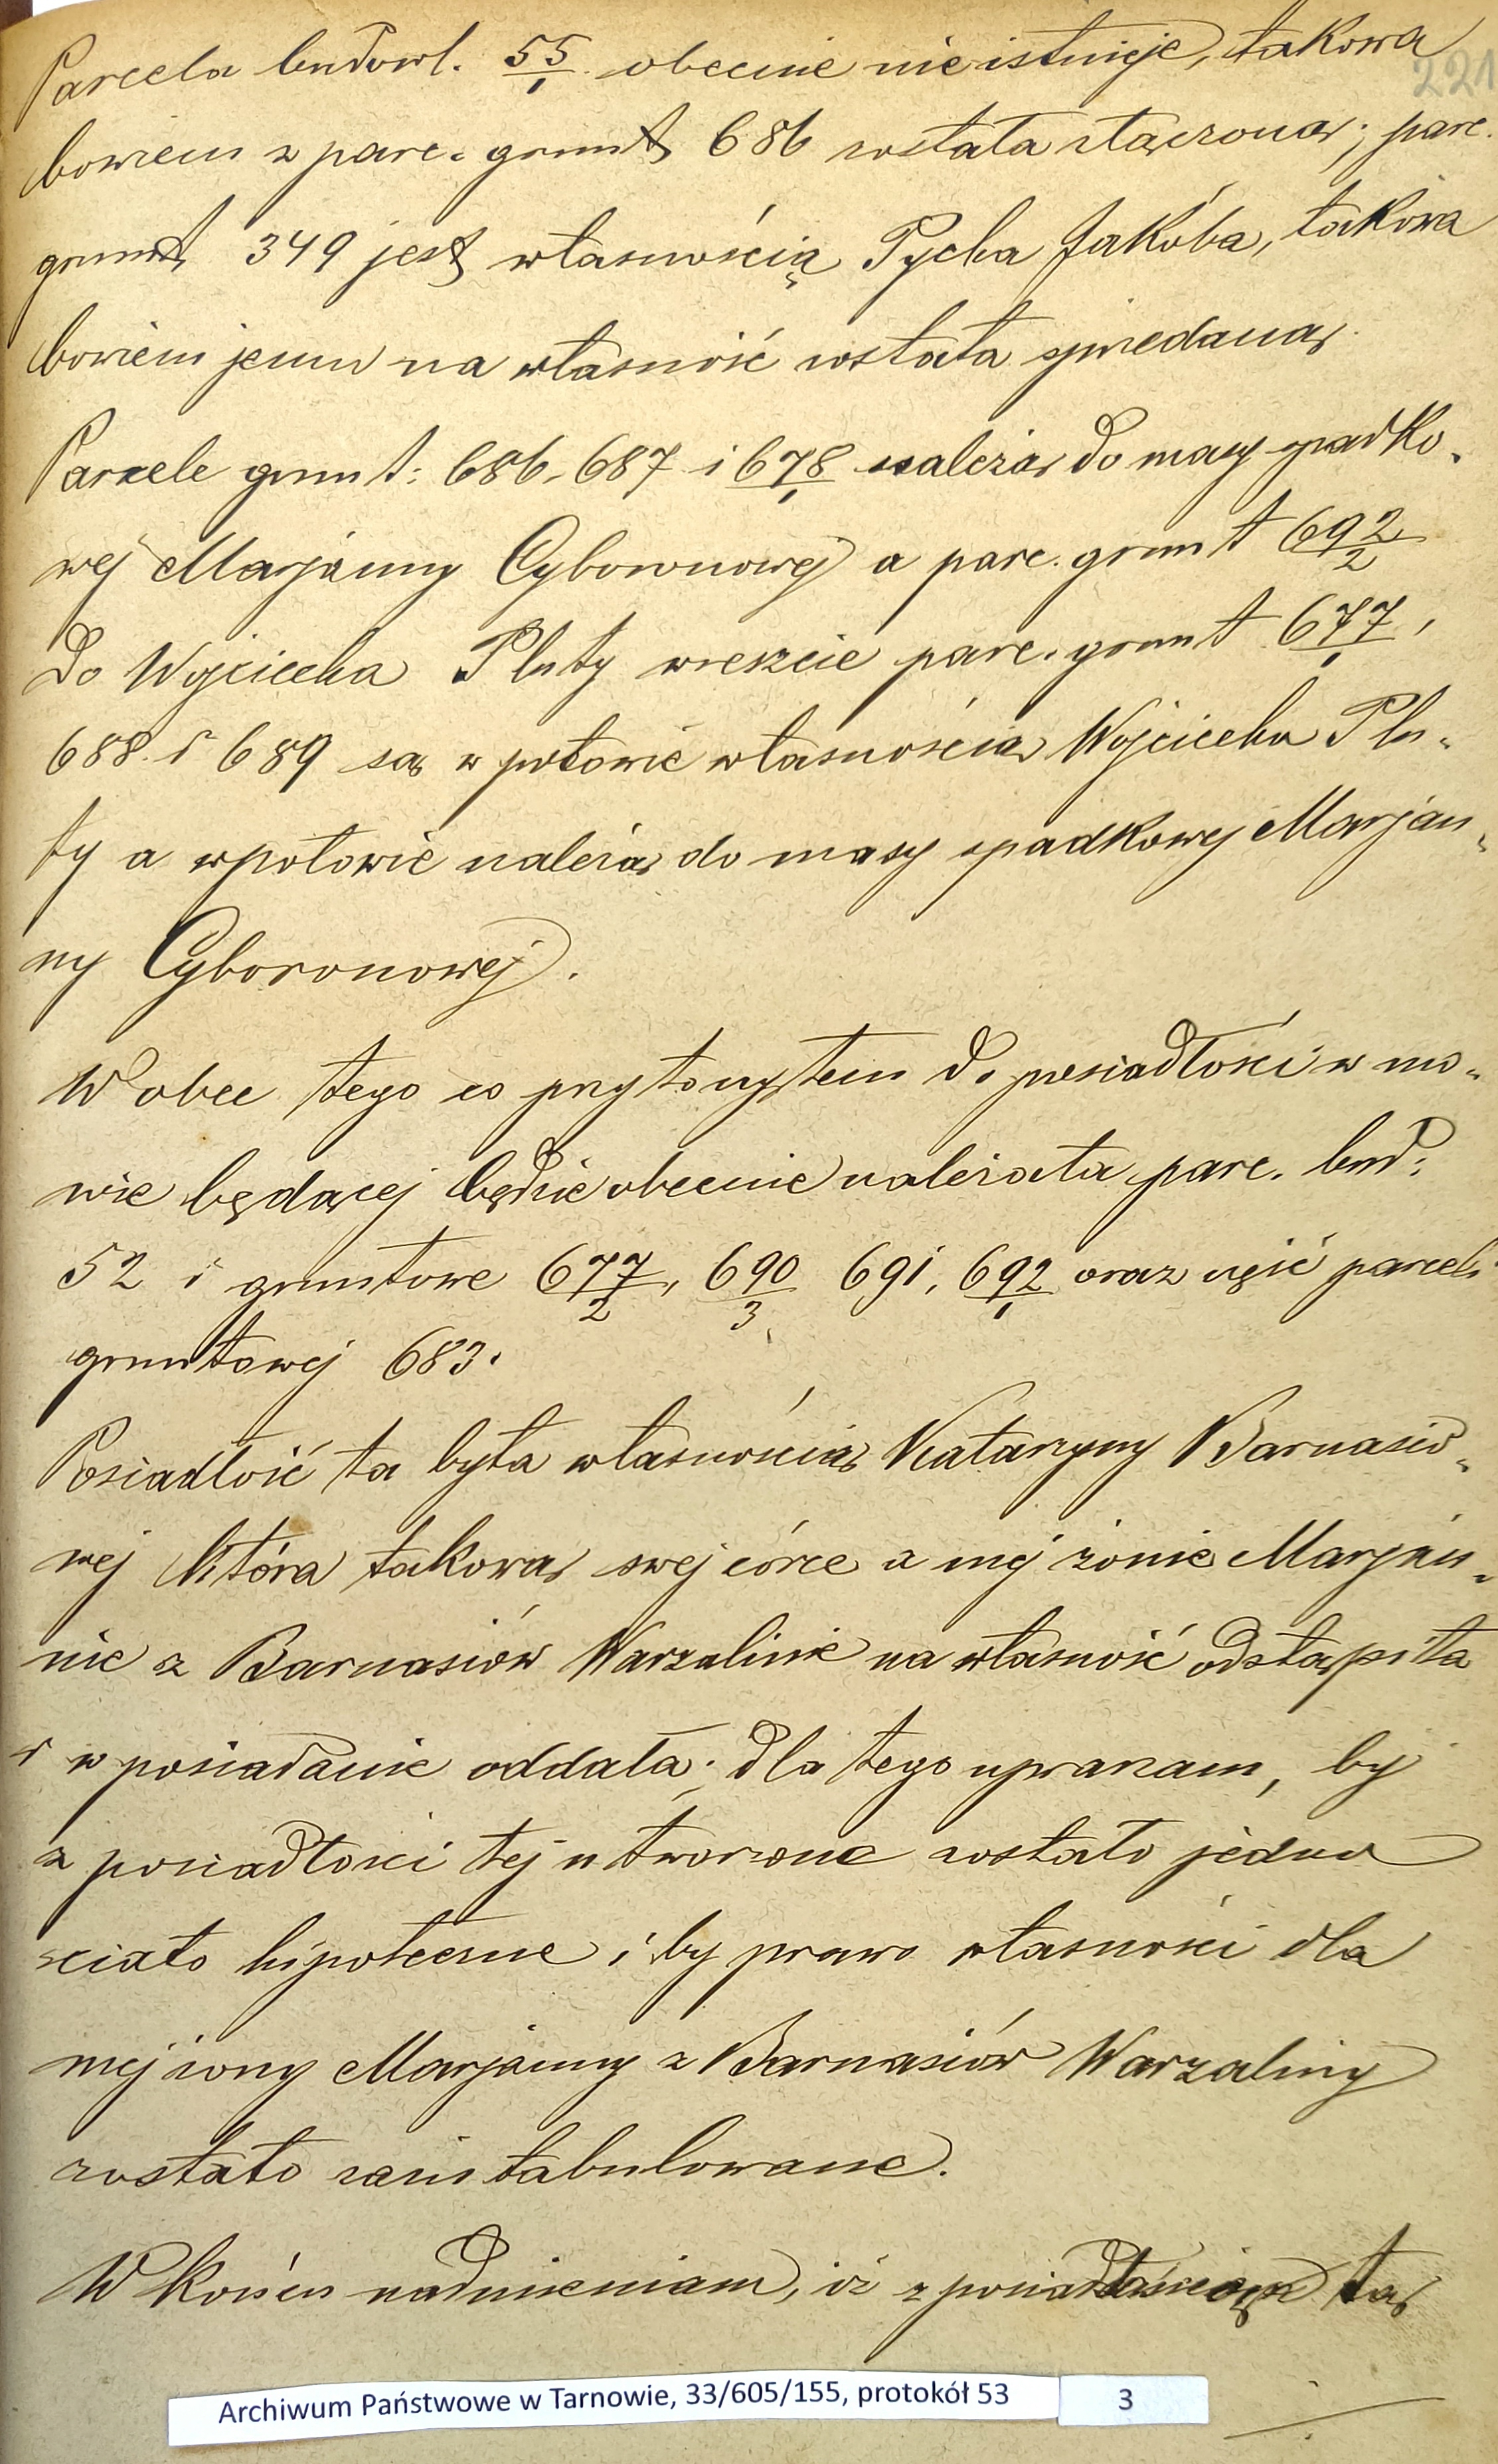 221
Parcela budowl. 55/1 obecnie nie istnieje, takowa
bowiem z parc. grunt 686 została złączona; parc.
grunt 349 jest własnością Pycha Jakóba, takowa
bowiem jemu na własność została sprzedana.
Parcele grunt: 686, 687 i 678/1 należą do masy spadko-
wej Marjanny Cyboronowej a parc. grunt 692/2
do Wojciecha Pluty wreszcie parc. grunt 677/1,
688 i 689 są w połowie własnością Wojciecha Plu-
ty a w połowie należą do masy spadkowej Marjan-
ny Cyboronowej.
Wobec tego co przytoczyłem do posiadłości w mo-
wie będącej będzie obecnie należała parc. bud:
52 i gruntowe 677/2, 690/3 691, 692/1 oraz część parceli
gruntowej 683.
Posiadłość ta była własnością Katarzyny Barnasio-
wej która takową swej córce a mej żonie Marjan-
nie z Barnasiów Warzalinie na własność odstąpiła
i w posiadanie oddała; dla tego upraszam, by
z posiadłości tej utworzone zostało jedno
ciało hipoteczne i by prawo własności dla
mej żony Marjanny z Barnasiów Warzaliny
zostało zaintabulowane.
W końcu nadmieniam, iż z posiadłością tą
Archiwum Państwowe w Tarnowie, 33/605/155, protokół 53 3